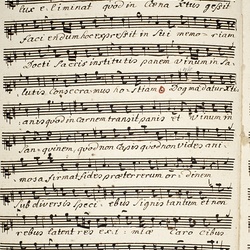 lux eliminat quod in Cœna Xtus gessit
faciendum hoc expressit in sui memoriam
Docti Sacris institutis panem vinum in sa-
lutis consecramus hostiam Dogma datur Xti-
anis quod in carnem transit panis et vinum in
Sanguinem, quod non capis quod non vides ani-
mosa firmat fides præter rerum ordinem
Sub diversis speciebus signis tantum et non
rebus latent res eximiæ Caro cibus